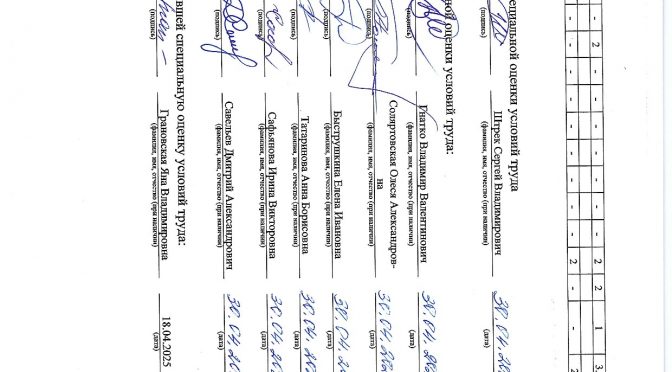 - - 2 - - - - - 2 2 1 3.
- - - - - - - - - 2 - 2
специальной оценки условий труда
Штрек Сергей Владимирович
(подпись) (фамилия, имя, отчество (при наличии) (дата)
ной оценки условий труда:
Гнатко Владимир Валентинович 30.04.20
(подпись) (фамилия, имя, отчество (при наличии) (дата)
Соляртовская Олеся Александров-
на 30.04.20
(подпись) (фамилия, имя, отчество (при наличии) (дата)
Быструшкина Елена Ивановна 30.04.20
(подпись) (фамилия, имя, отчество (при наличии) (дата)
Татаринова Анна Борисовна 30.04.20
(подпись) (фамилия, имя, отчество (при наличии) (дата)
Сафьянова Ирина Викторовна 30.04.20
(подпись) (фамилия, имя, отчество (при наличии) (дата)
Савельев Дмитрий Александрович 30.04.20
(подпись) (фамилия, имя, отчество (при наличии) (дата)
вшей специальную оценку условий труда:
Грановская Яна Владимировна 18.04.2025
(подпись) (фамилия, имя, отчество (при наличии) (дата)